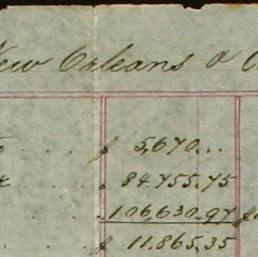 New Orleans &
$ 5,670...
" 84.755.75
106,630.97 $
$ 11.865,35